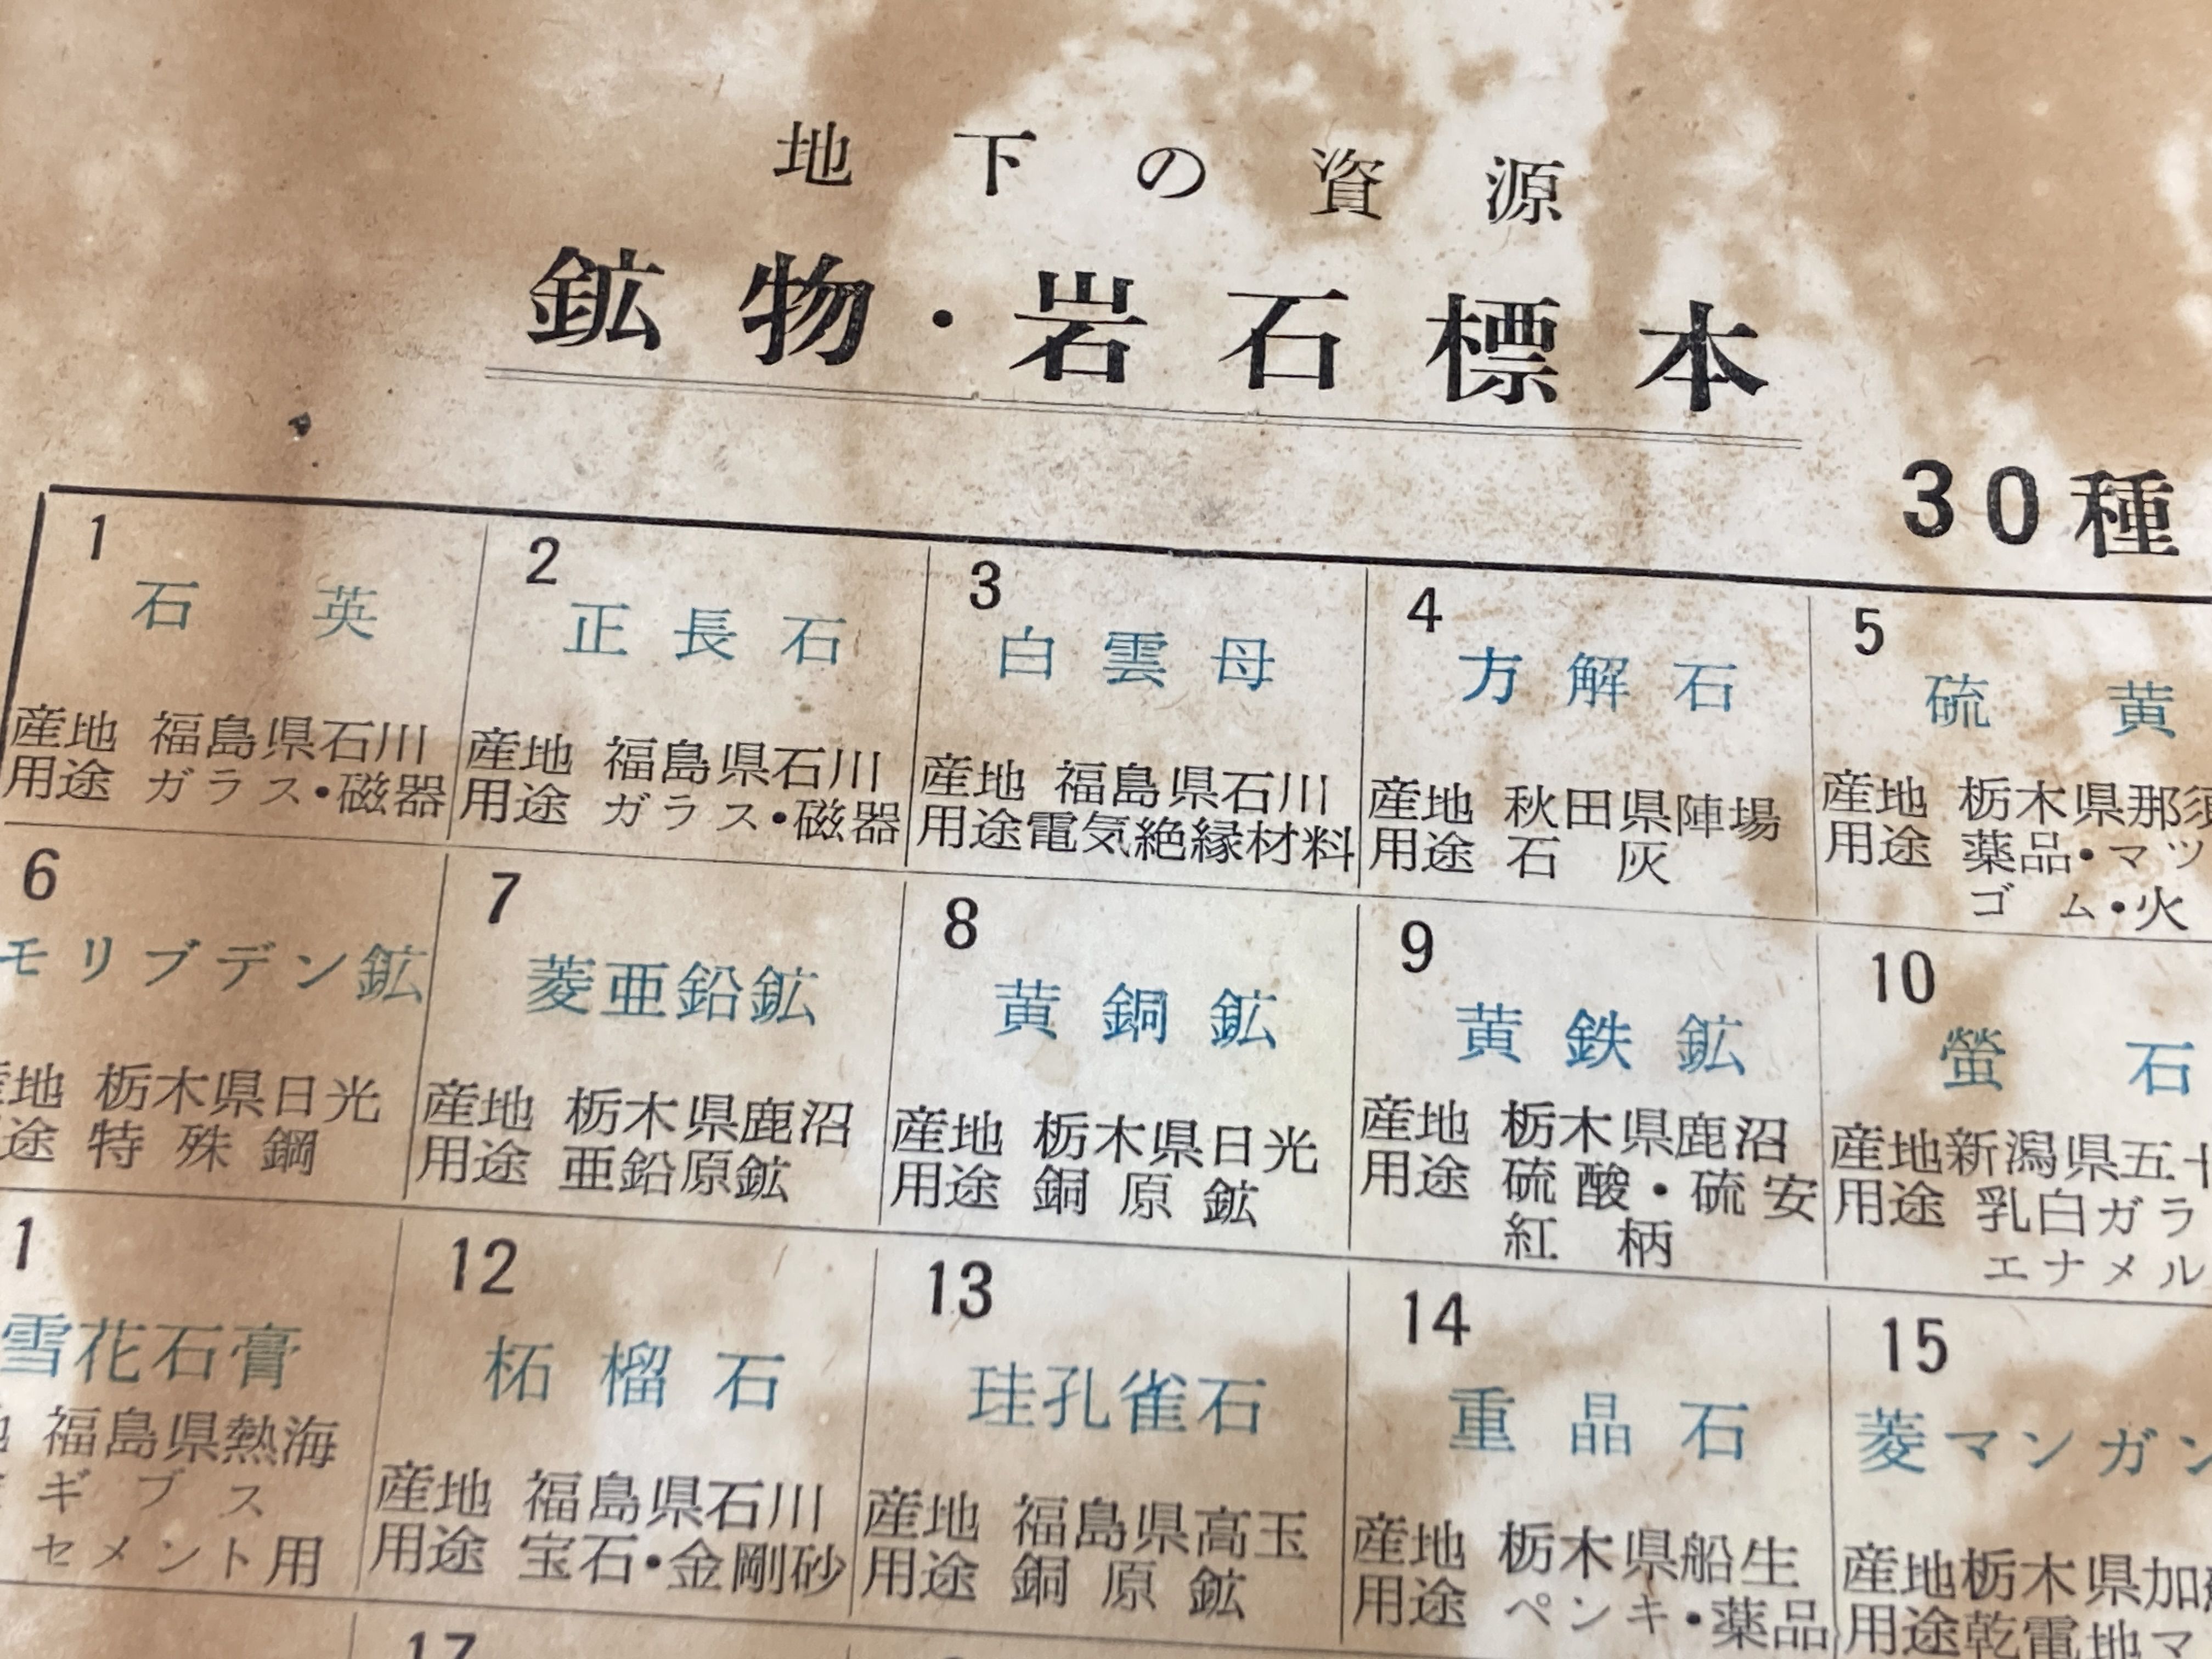 地下の資源
鉱物・岩石標本
30種
1
石英
産地 福島県石川
用途 ガラス・磁器
2
正長石
産地 福島県石川
用途 ガラス・磁器
3
白雲母
産地 福島県石川
用途電気絶縁材料
4
方解石
産地 秋田県陣場
用途 石灰
5
硫黄
産地 栃木県那須
用途 薬品・マッ
ゴム・火
6
モリブデン鉱
産地 栃木県日光
途 特殊鋼
7
菱亜鉛鉱
産地 栃木県鹿沼
用途 亜鉛原鉱
8
黄銅鉱
産地 栃木県日光
用途 銅原鉱
9
黄鉄鉱
産地 栃木県鹿沼
用途 硫酸・硫安
紅柄
10
螢石
産地新潟県五十
用途 乳白ガラ
エナメル
1
雪花石膏
地 福島県熱海
ギブス
セメント用
12
柘榴石
産地 福島県石川
用途 宝石・金剛砂
13
珪孔雀石
産地 福島県高玉
用途 銅原鉱
14
重晶石
産地 栃木県船生
用途 ペンキ・薬品
15
菱マンガン
産地栃木県加
用途乾電地マ
17